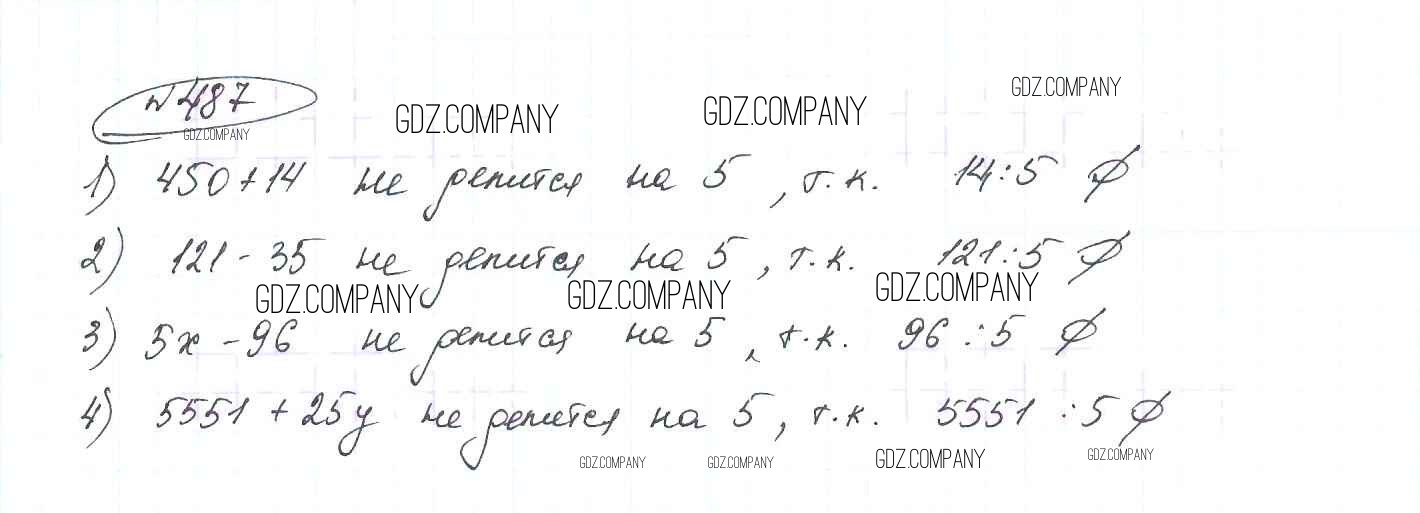 № 487
GDZ.COMPANY
GDZ.COMPANY
GDZ.COMPANY
GDZ.COMPANY
1) 450+14 не делится на 5, т.к. 14:5 ∅
2) 121 - 35 не делится на 5, т.к. 121:5 ∅
GDZ.COMPANY
GDZ.COMPANY
GDZ.COMPANY
3) 5x - 96 не делится на 5, т.к. 96 :5 ∅
4) 5551 + 25y не делится на 5, т.к. 5551 :5 ∅
GDZ.COMPANY
GDZ.COMPANY
GDZ.COMPANY
GDZ.COMPANY